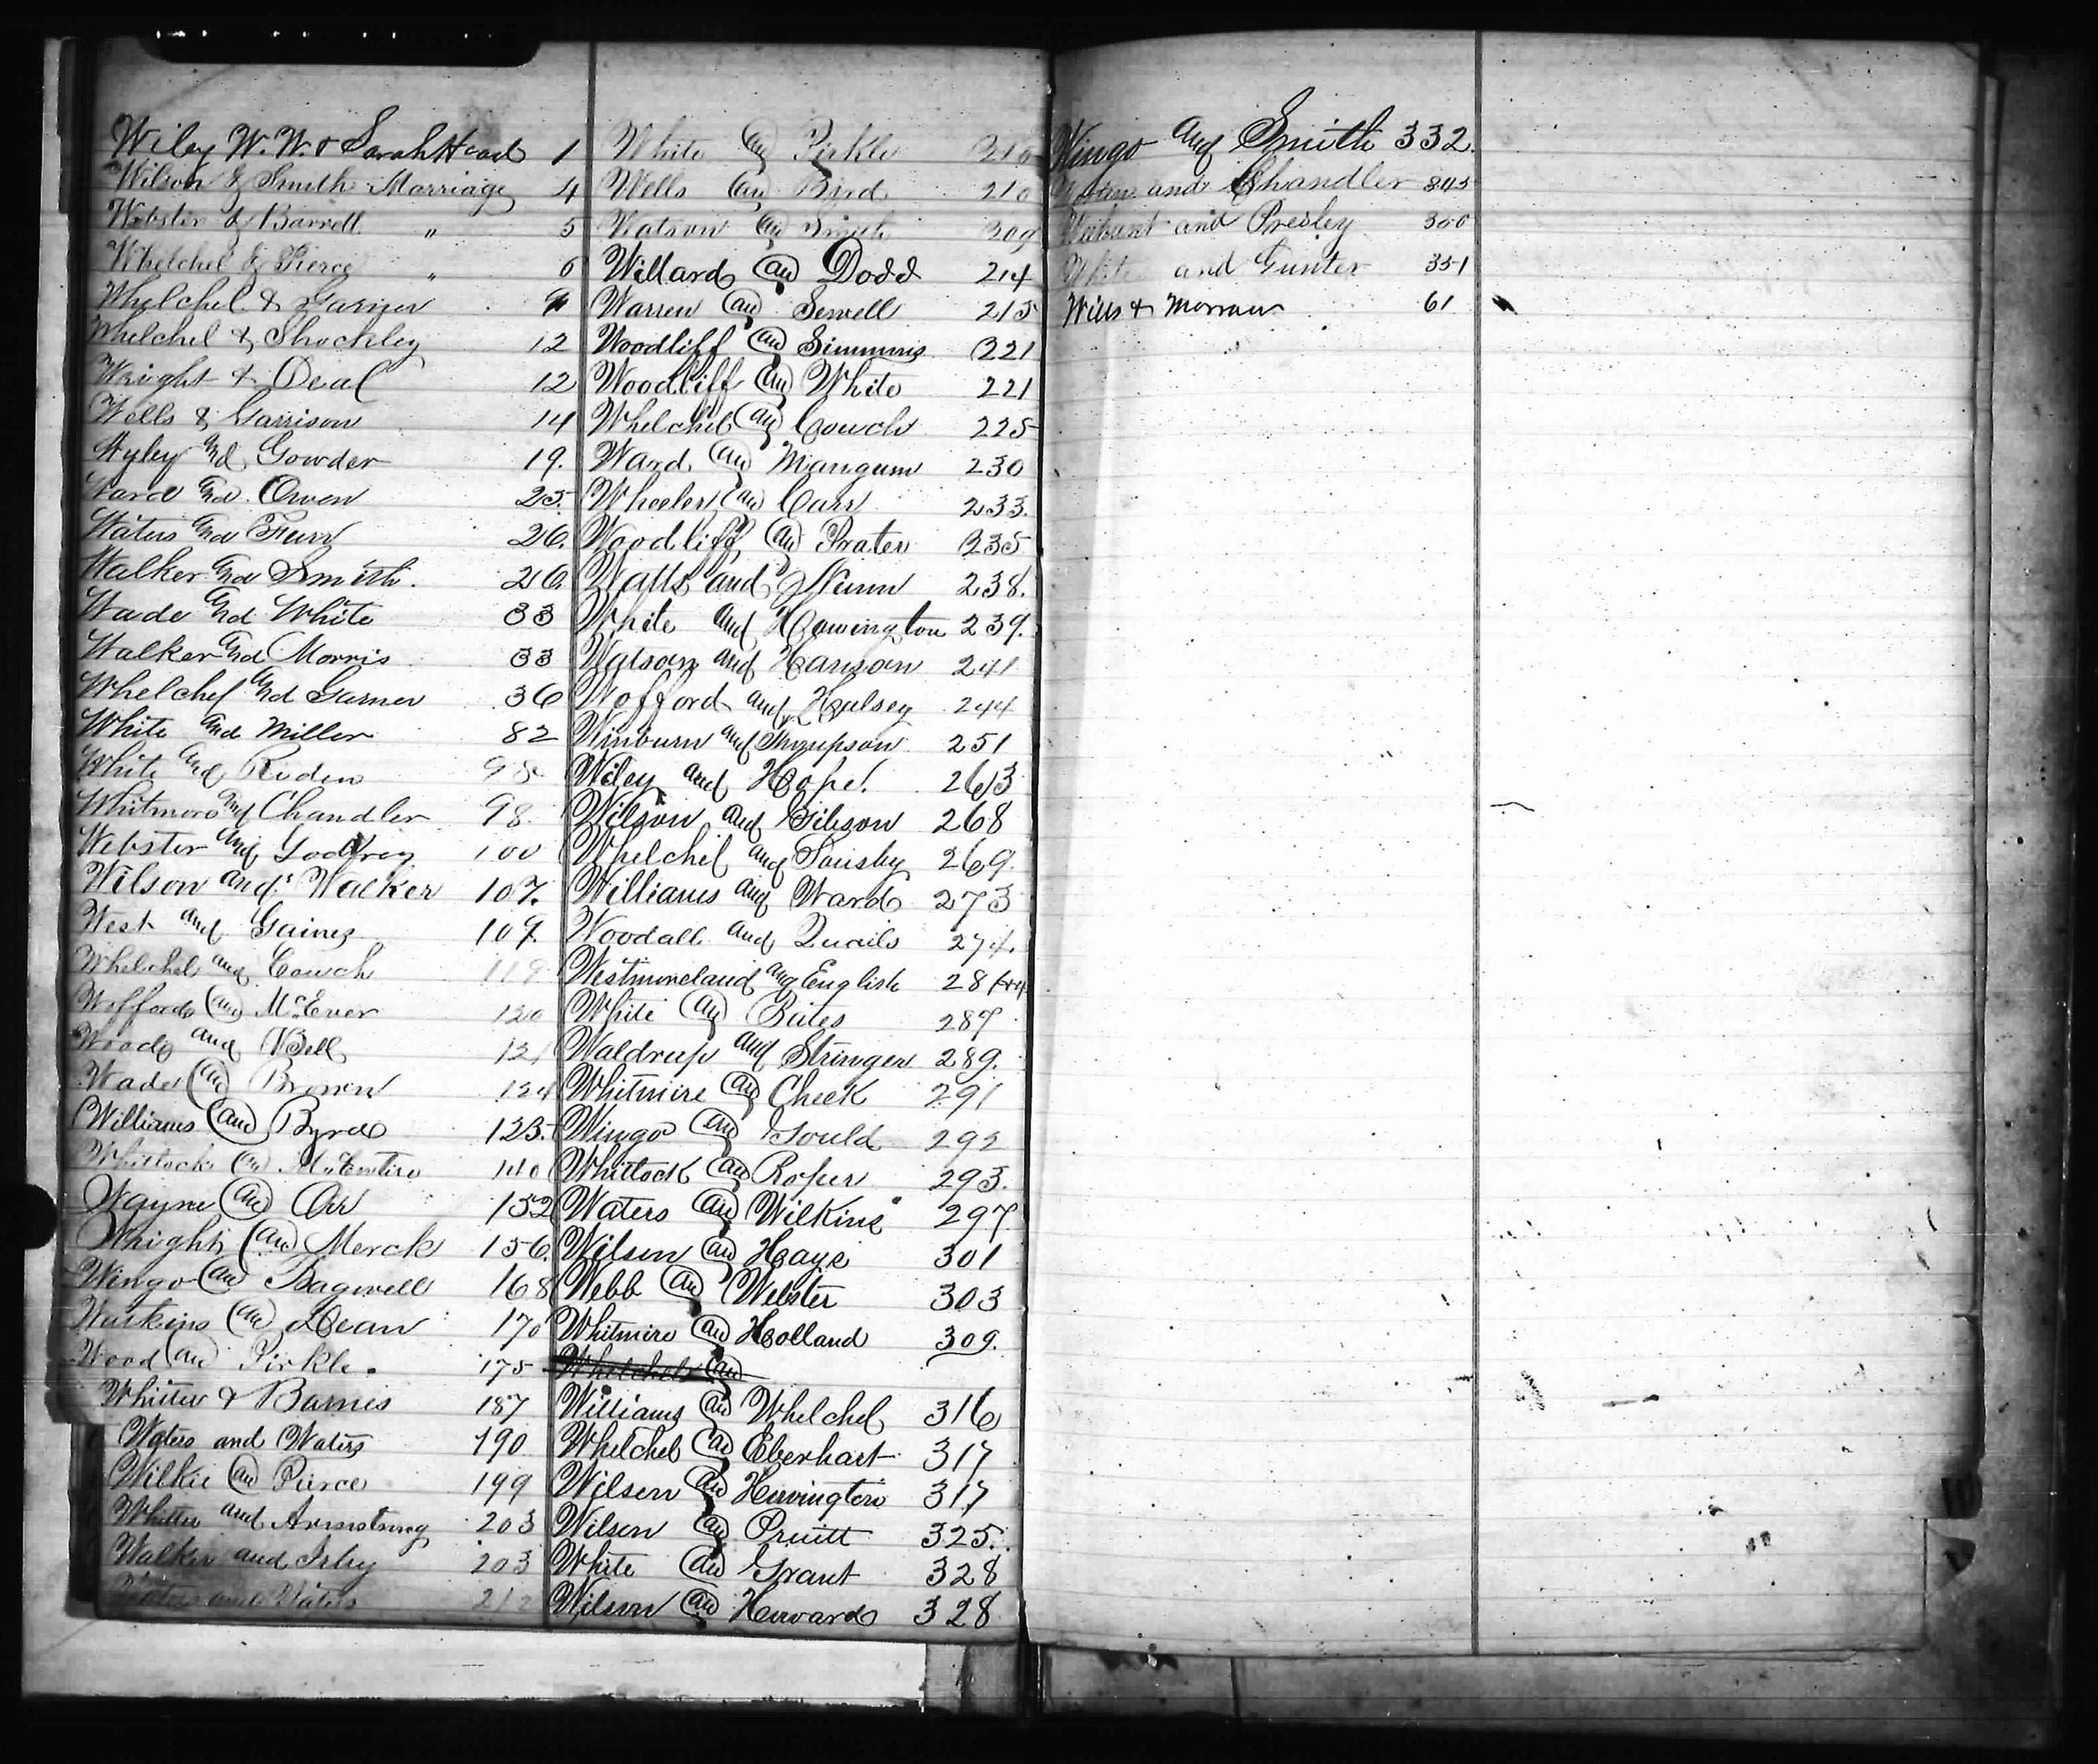 Wiley W. W. & Sarah Head 1
Wilson & Smith Marriage 4
Webster & Barrett " 5
Whelchel & Pierce " 6
Whelchel & Garner 9
Whelchel & Shockley 12
Wright & Deal 12
Wells & Garrison 14
Wyley and Gowder 19.
Ward and Owen 25.
Waters and Furr 26.
Walker and Smith. 26.
Wade and White 33
Walker and Morris 33
Whelchel and Garner 36
White and Miller 82
White and Ruden
Whitmore and Chandler 98.
Webster and Godfrey 100
Wilson and Walker 107.
West and Gaines 109.
Whelchel and Couch 119
Wofford an McEver 120
Woody and Bell 121
Wade an Brown 124
Williams an Byrd
Whitlock an McEntire 140
Wayne an Orr 152
Wright an Merck 156.
Wingo an Bagwell 168
Watkins an Dean 170
Wood an Pirkle. 175
& Barnes 187
Waters and Waters 190
Wilkie an Pierce 199
and Armstrong 203
Walker and Irby 203
Waters and Waters 212
White an Pirkle 210
Wells an Byrd 210
Watson an Smith 209
Willard an Dodd 214
Warren an Sewell 215
Woodliff an Simmons 221
Woodliff an White 221
Whelchel an Couch 225
Ward an Mangum 230
Wheeler an Carr 233.
Woodliff an Prater 235
Watts and Nunn 238.
White and Hawington 239.
Watson and Hanson 241
Wofford and Hulsey 244
Winburn and Thompson 251
Wiley and Hope. 263
Wilson and Gibson 268
Whelchel and 269.
Williams and Ward 273
Woodall and Quails 274.
Westmoreland and English
White an Bates 287
Waldrup and Stringer 289.
Whitmire an Cheek 291
Wingo an Gould 292
Whitlock an Roper 293.
Waters an Wilkins 297
Wilson an Hays 301
Webb an Webster 303
Whitmire an Holland 309.
Whelchel an
Williams an Whelchel 316
Whelchel an Eberhart 317
Wilson an Hervington 317
Wilson an Pruitt 325.
White an Grant 328
Wilson an Howard 328
Wingo and Smith 332.
and Chandler 345
and Presley 350
White and Gunter 351
Wills & Morrow 61